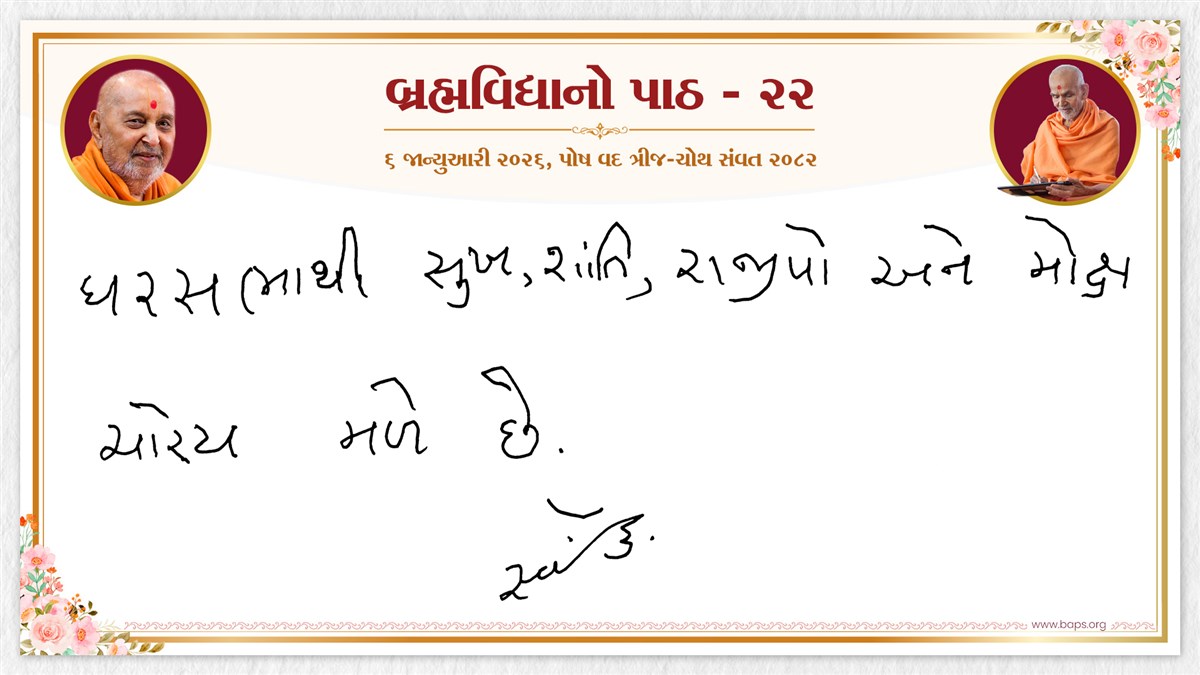 બ્રહ્મવિદ્યાનો પાઠ - ૨૨
૬ જાન્યુઆરી ૨૦૨૬, પોષ વદ ત્રીજ-ચોથ સંવત ૨૦૮૨
ઘરસભાથી સુખ, શાંતિ, રાજીપો અને મોક્ષ
ચોરચ મળે છે.
www.baps.org